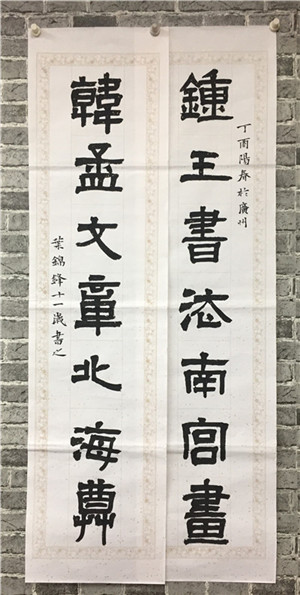 鍾王書法南宮畫
丁酉陽春於廣州
韓孟文章北海尊
葉錦鋒十一歲書之